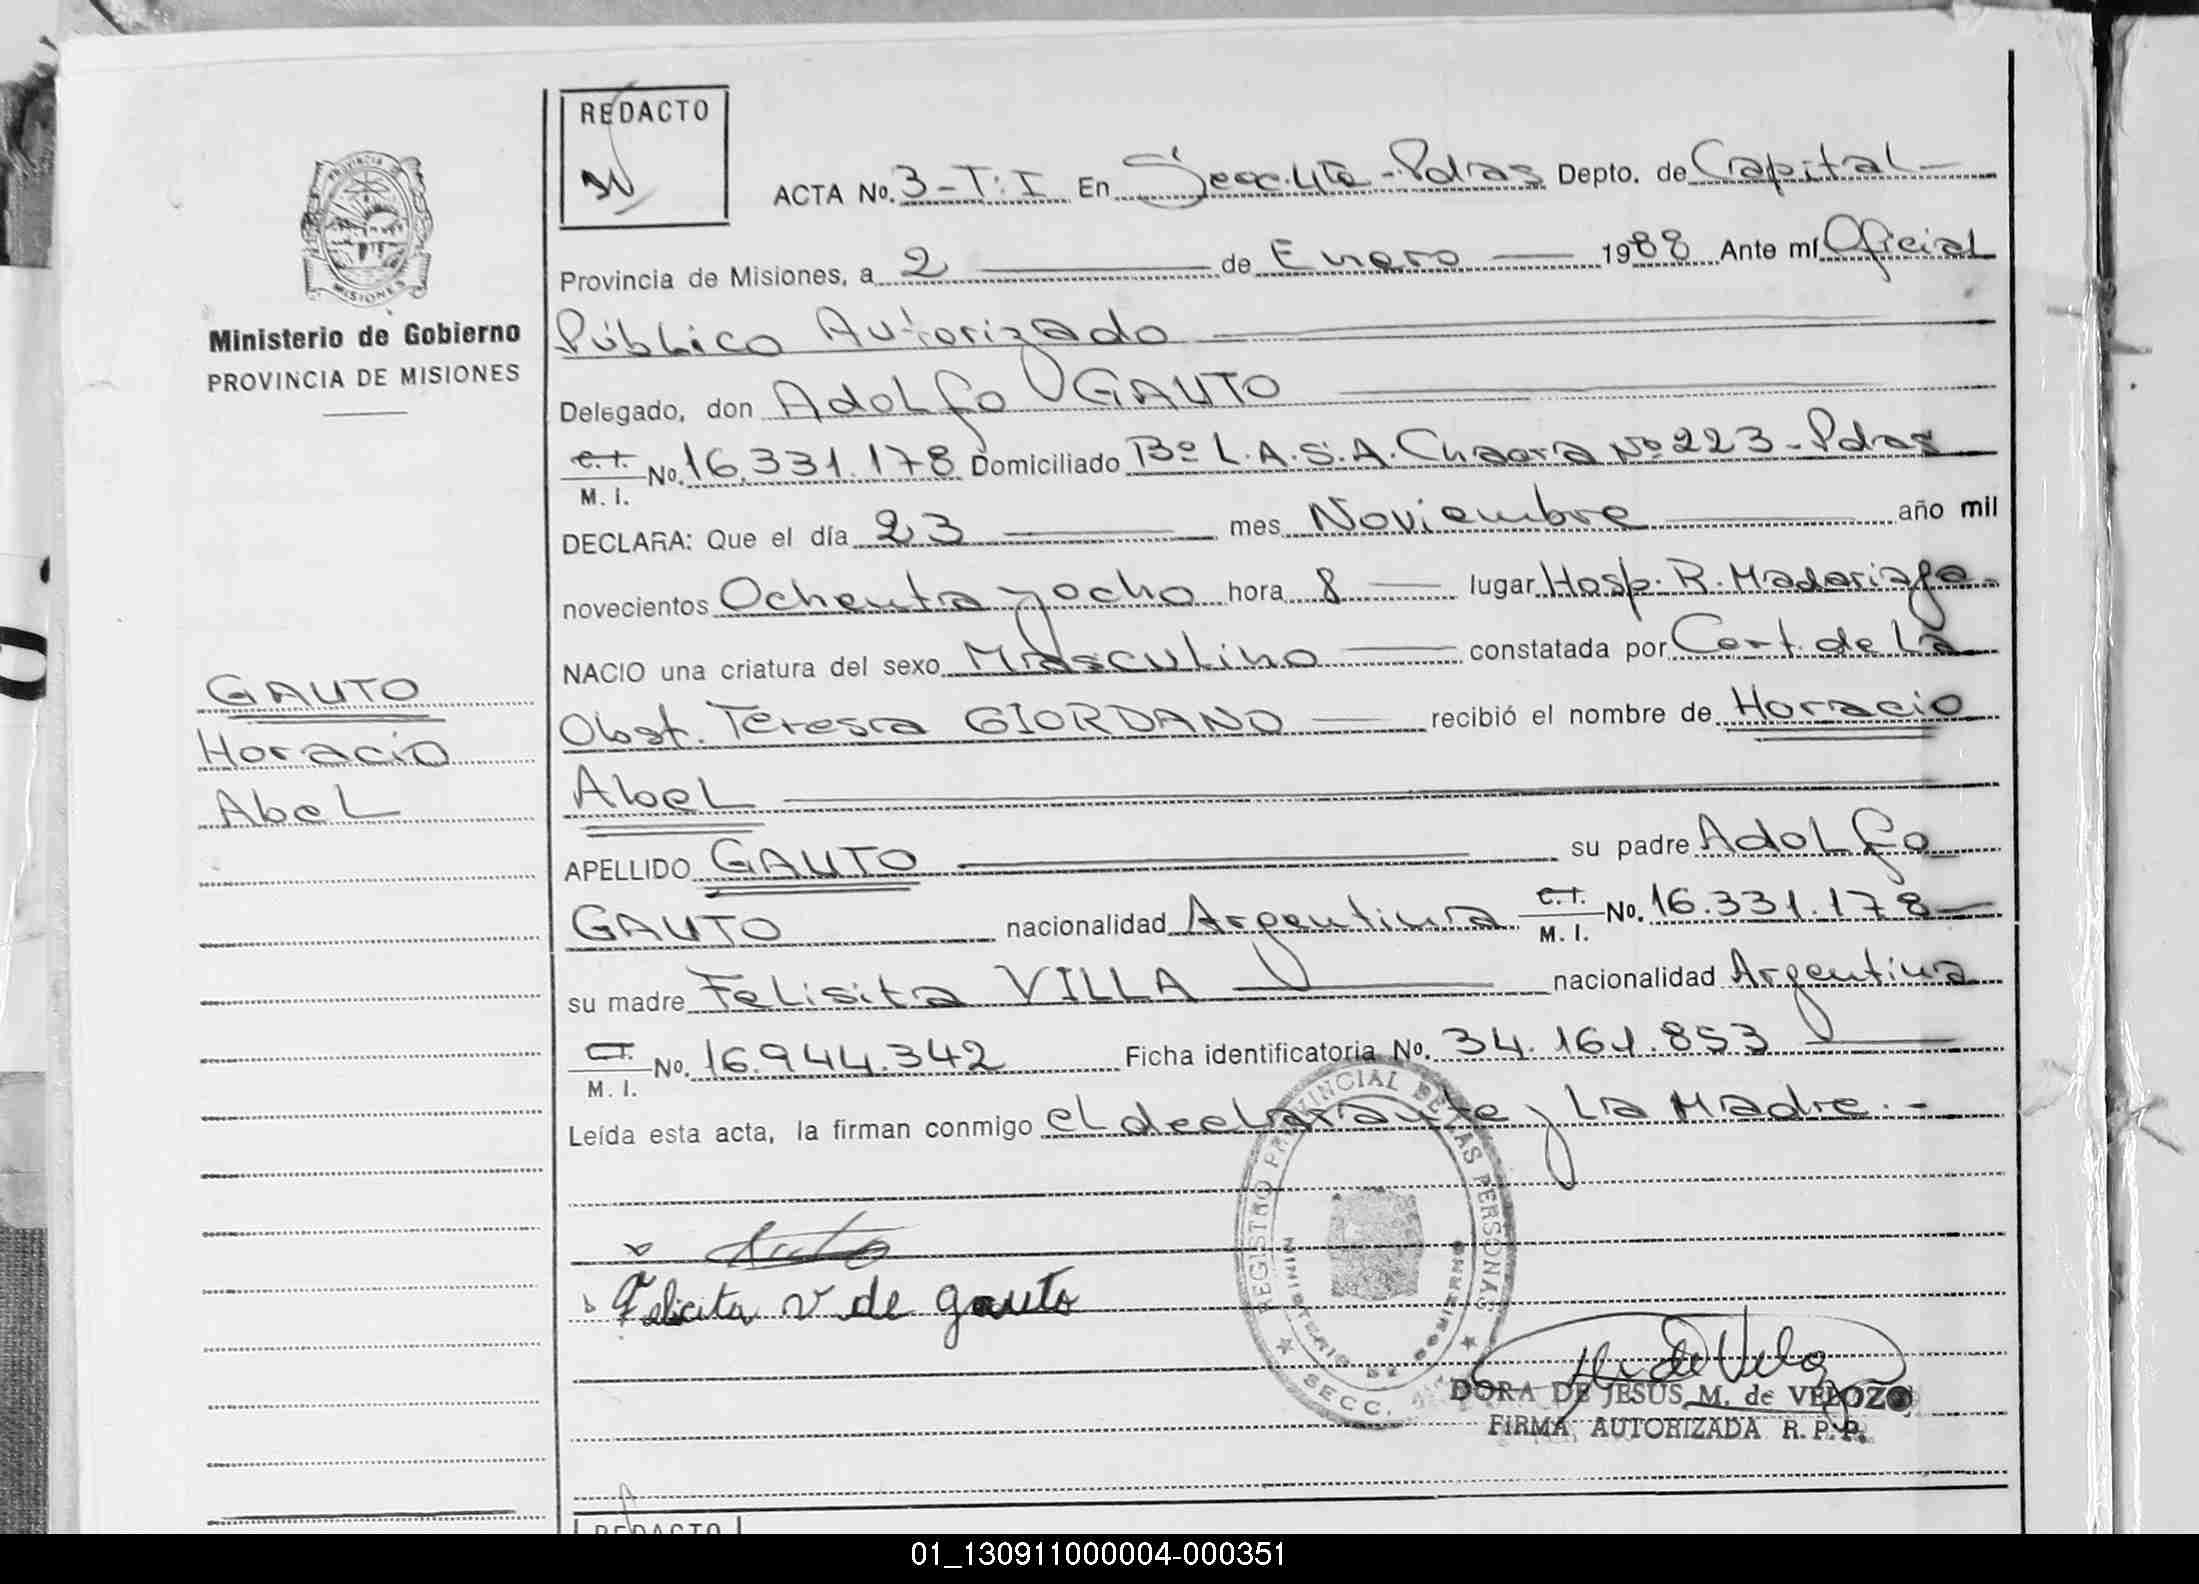 REDACTO
ACTA No. 3-T:I En Secc.4ta-Pdas Depto. de Capital
PROVINCIA
MISIONES
Provincia de Misiones, a 2 de Enero 1988 Ante mí Oficial
Ministerio de Gobierno
PROVINCIA DE MISIONES
Público Autorizado
Delegado, don Adolfo GAUTO
C.I. M. I. No. 16.331.178 Domiciliado Bº L.A.S.A. Chacra Nº 223-Pdas
DECLARA: Que el día 23 mes Noviembre año mil
novecientos Ochenta y ocho hora 8 lugar Hosp. R. Madariaga-
NACIO una criatura del sexo Masculino constatada por Cert. de La
Obst. Teresa GIORDANO recibió el nombre de Horacio
Abel
GAUTO
Horacio
Abel
APELLIDO GAUTO su padre Adolfo
GAUTO nacionalidad Argentina C.I. M. I. No. 16.331.178
su madre Felisita VILLA nacionalidad Argentina
C.I. M. I. No. 16.944.342 Ficha identificatoria No. 34.161.853
Leída esta acta, la firman conmigo el declarante y La Madre.-
REGISTRO PROVINCIAL DE LAS PERSONAS
MINISTERIO DE GOBIERNO
SECC.
Felicita v de gauto
DORA DE JESUS M. de VELOZO
FIRMA AUTORIZADA R. P. P.
REDACTO
01_130911000004-000351